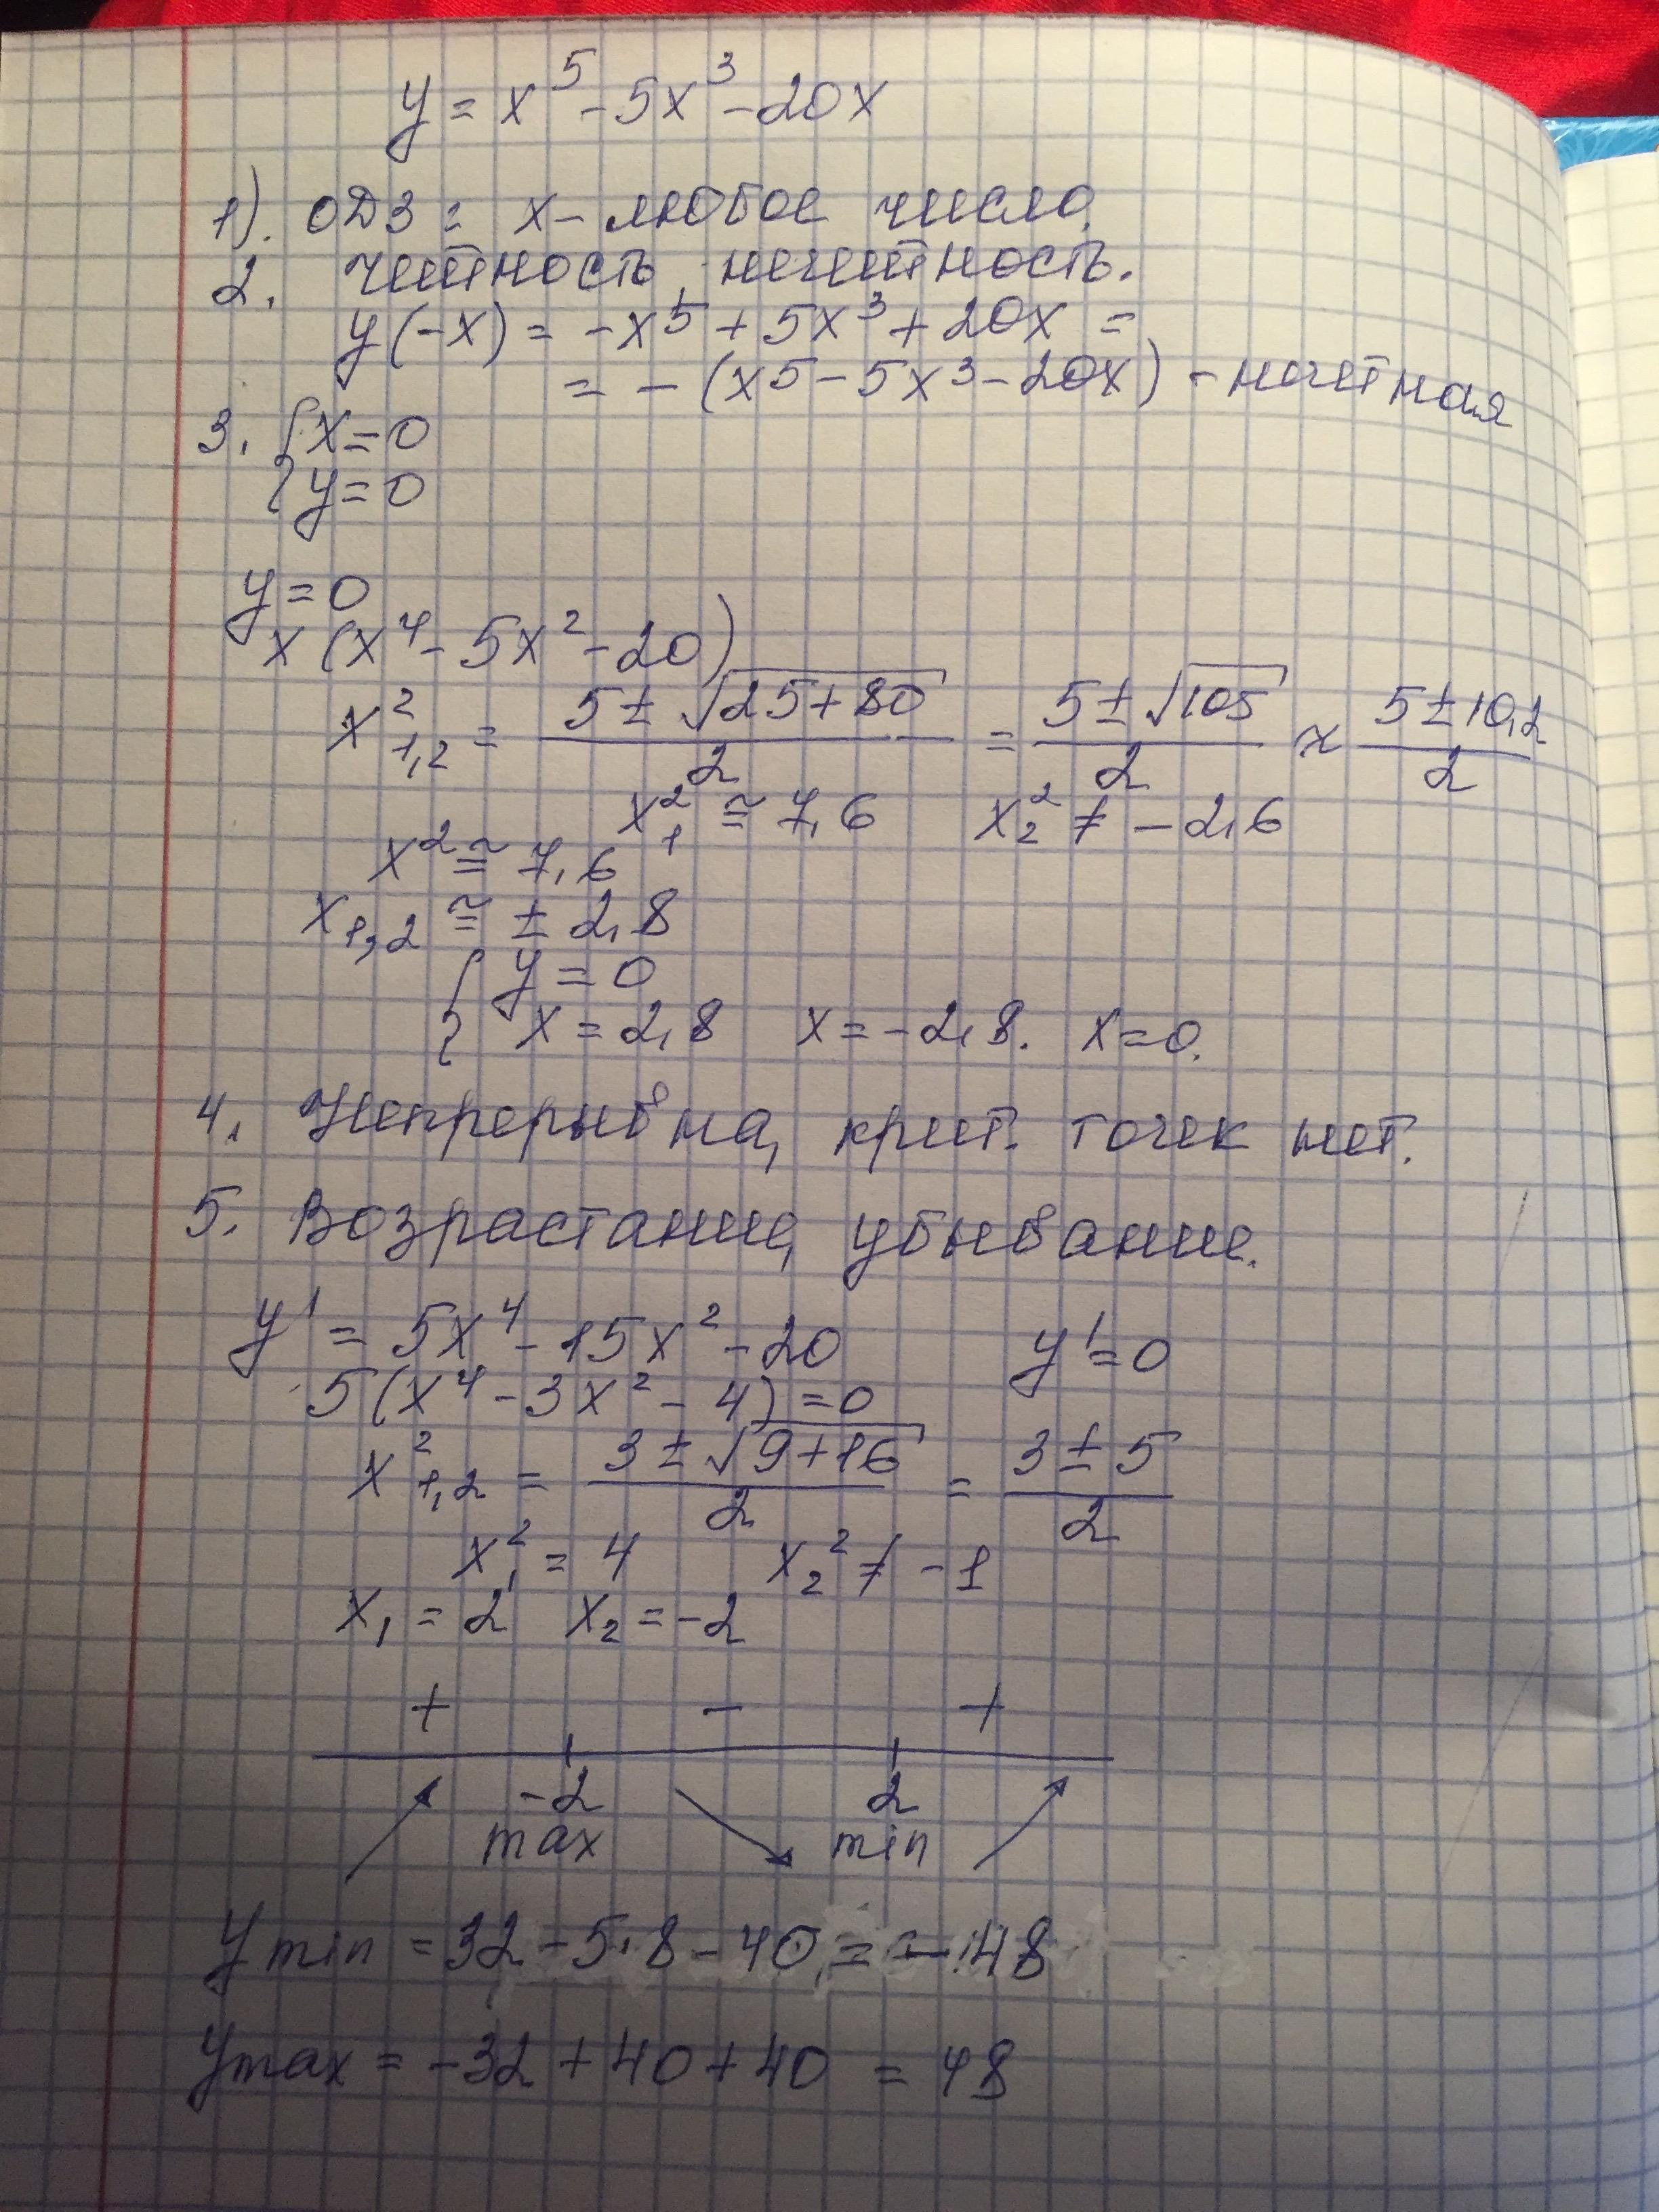 y = x⁵ - 5x³ - 20x
1). ОДЗ: x - любое число.
2. четность, нечетность.
y(-x) = -x⁵ + 5x³ + 20x =
= - (x⁵ - 5x³ - 20x) - нечетная
3. { x = 0
{ y = 0
y = 0
x (x⁴ - 5x² - 20)
x²₁,₂ = (5 ± √(25 + 80))/2 = (5 ± √105)/2 ≈ (5 ± 10,2)/2
x₁² ≅ 7,6 x₂² ≠ -2,6
x² ≅ 7,6
x₁,₂ ≅ ± 2,8
{ y = 0
{ x = 2,8 x = -2,8. x = 0.
4. Непрерывна, крит. точек нет.
5. Возрастание, убывание.
y' = 5x⁴ - 15x² - 20 y' = 0
5(x⁴ - 3x² - 4) = 0
x²₁,₂ = (3 ± √(9 + 16))/2 = (3 ± 5)/2
x₁² = 4 x₂² ≠ -1
x₁ = 2 x₂ = -2
+ - +
-2 2
max min
y min = 32 - 5·8 - 40 = -48
y max = -32 + 40 + 40 = 48